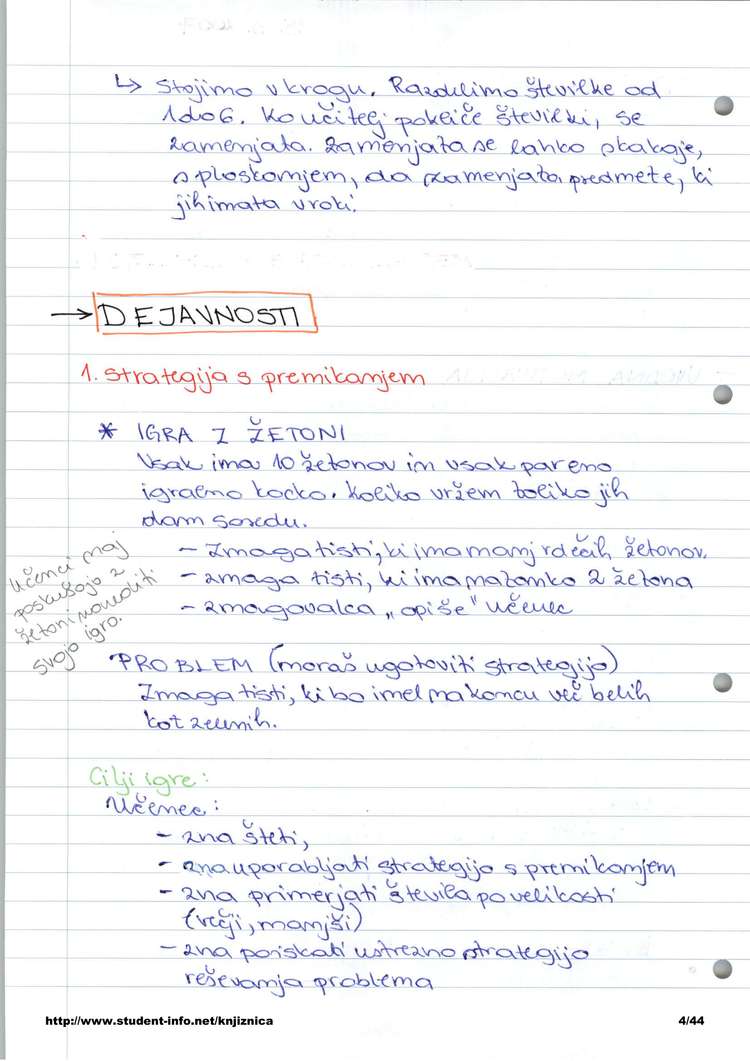 ↳ Stojimo v krogu. Razdelimo številke od
1 do 6. Ko učitelj pokliče številki, se
zamenjata. Zamenjata se lahko skakaje,
s ploskanjem, da zamenjata predmete, ki
jih imata v roki.
→ DEJAVNOSTI
1. Strategija s premikanjem
* IGRA Z ŽETONI
Vsak ima 10 žetonov in vsak par eno
igralno kocko. Koliko vržem toliko jih
dam sosedu.
- Zmaga tisti, ki ima manj rdečih žetonov.
- zmaga tisti, ki ima natanko 2 žetona
- zmagovalca „opiše" učenec
Učenci naj
poskušajo z
žetoni narediti
svojo igro.
PROBLEM (moraš ugotoviti strategijo)
Zmaga tisti, ki bo imel na koncu več belih
kot zelenih.
Cilji igre:
Učenec:
- zna šteti,
- zna uporabljati strategijo s premikanjem
- zna primerjati števila po velikosti
(večji, manjši)
- zna poiskati ustrezno strategijo
reševanja problema
http://www.student-info.net/knjiznica 4/44